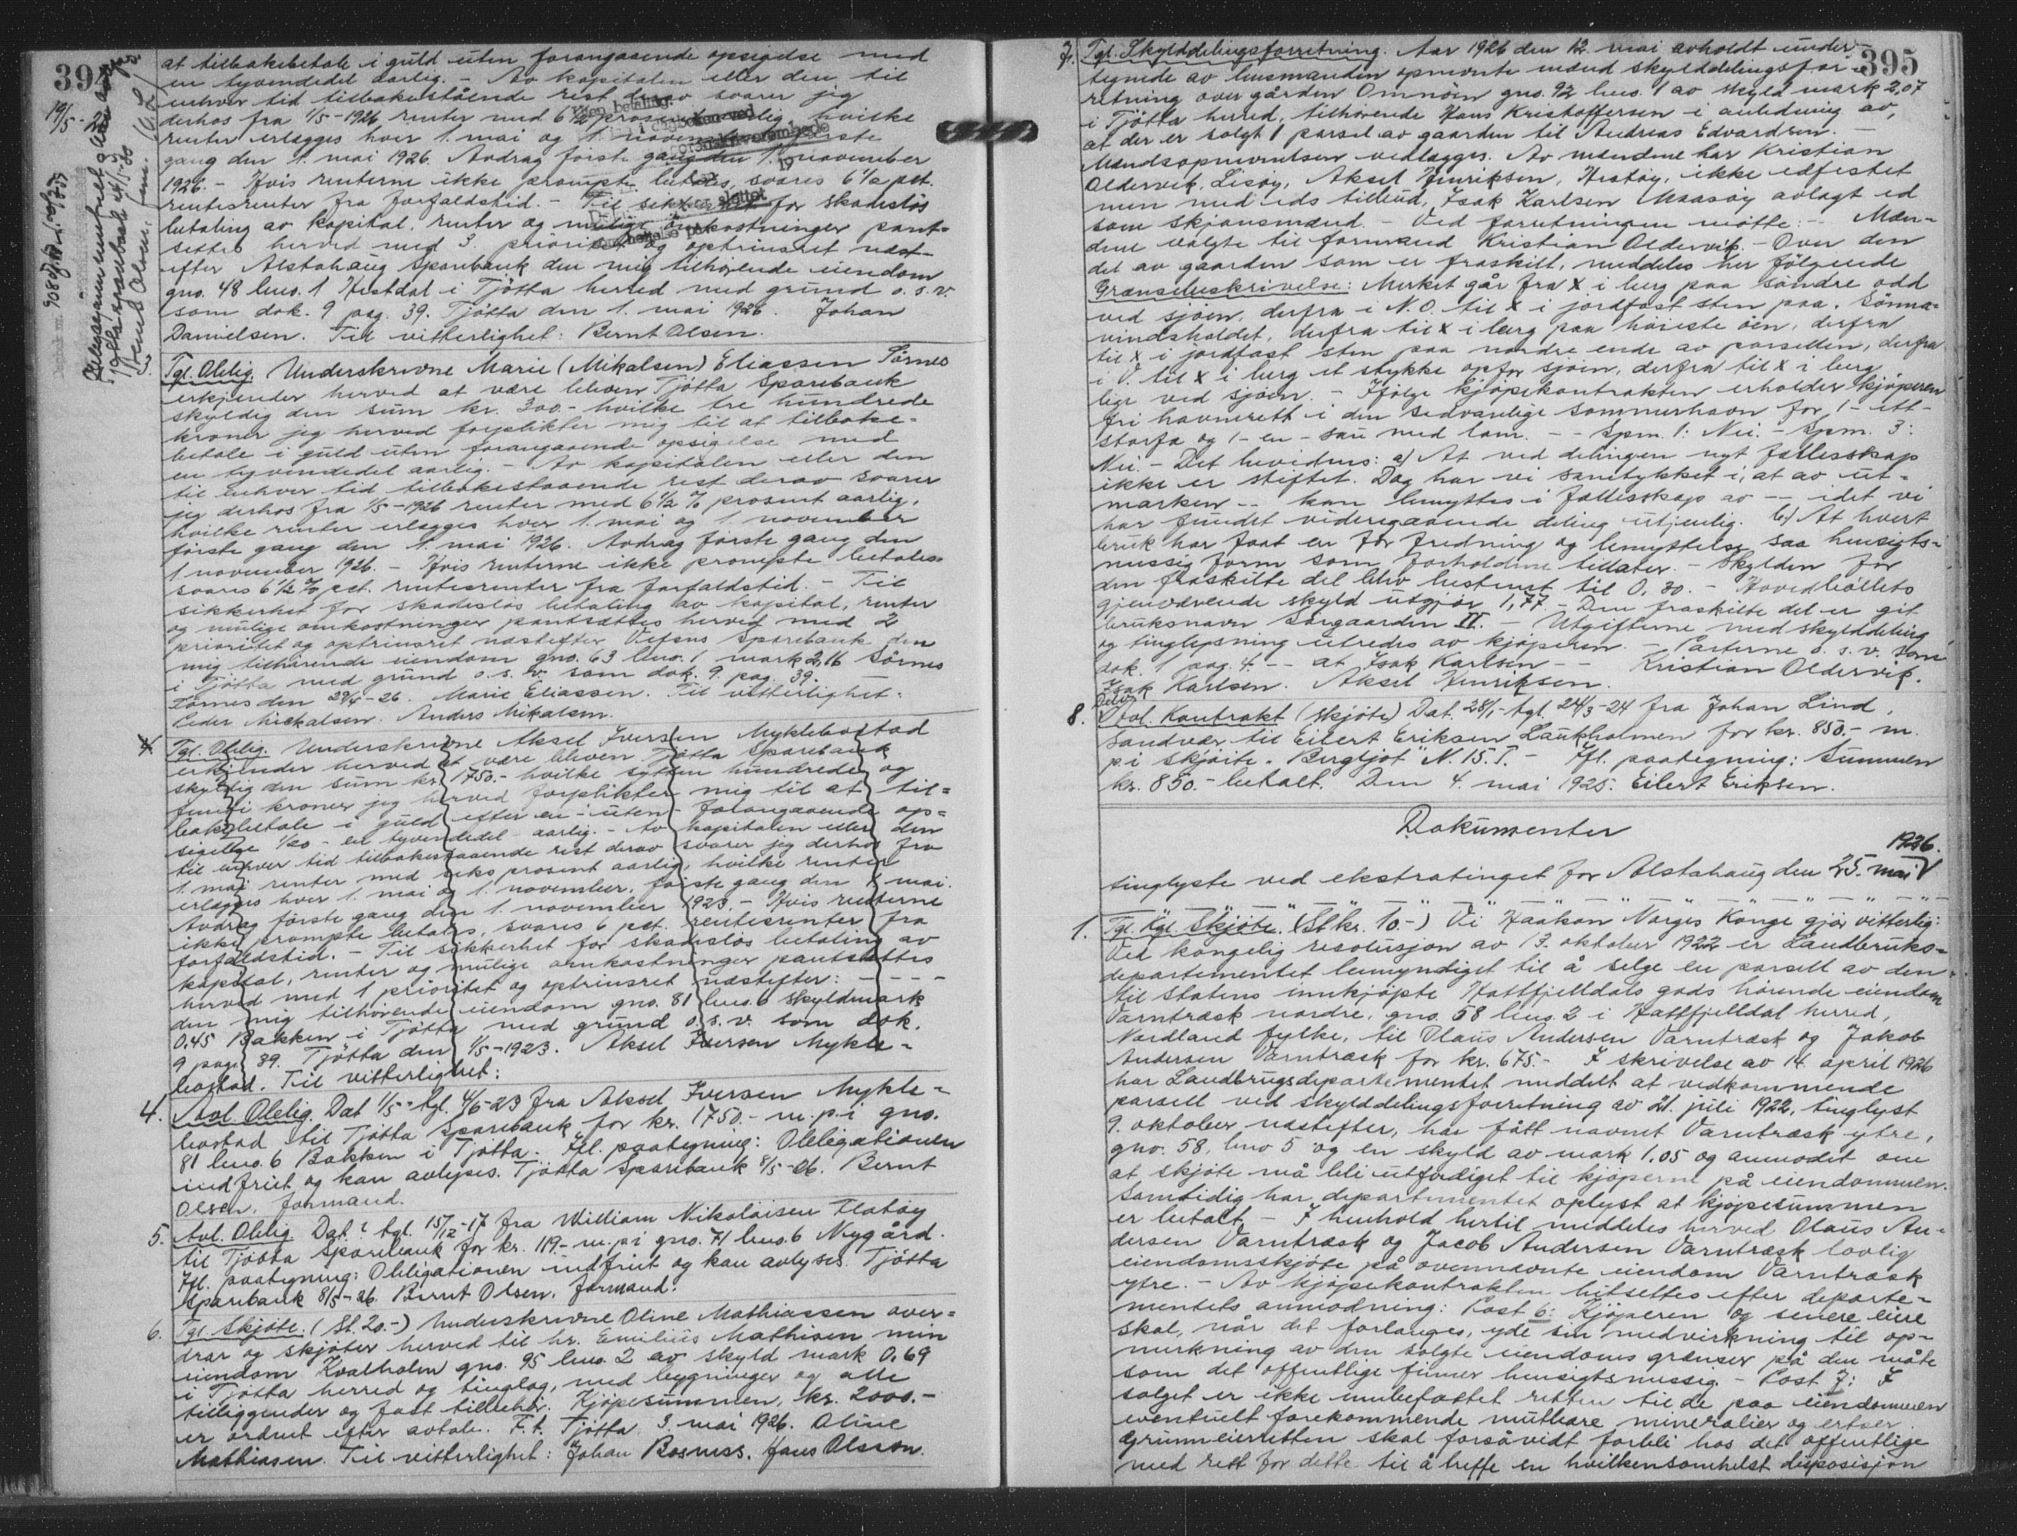 394
at tilbakebetale i guld uten forangaaende opsigelse med
en tyvendedel aarlig. - Av kapitalen eller den til
enhver tid tilbakestående rest derav svarer jeg
derhos fra 1/5-1926 renter med 6 1/2 prosent aarlig, hvilke
renter erlægges hver 1. mai og 1. november, første
gang den 1. mai 1926. Avdrag første gang den 1. november
1926. - Hvis renterne ikke prompte betales, svares 6 1/2 pct.
rentesrenter fra forfaldstid. - Til sikkerhet for skadesløs
betaling av kapital, renter og mulige omkostninger pant-
settes herved med 3. prioritet og optrinsret næst-
efter Alstahaug Sparebank den mig tilhørende eiendom
gno. 48 bno. 1 Hestdal i Tjøtta herred med grund o.s.v.
som dok. 9 pag. 39. Tjøtta den 1. mai 1926. Johan
Danielsen. Til vitterlighet: Bernt Olsen.
3. Tgl. Oblig. Underskrevne Marie (Mikalsen) Eliassen Sørnes
erkjender herved at være bleven Tjøtta Sparebank
skyldig den sum kr. 300.- hvilke tre hundrede
kroner jeg herved forplikter mig til at tilbake-
betale i guld uten forangaaende opsigelse med
en tyvendedel aarlig. - Av kapitalen eller den
til enhver tid tilbakestaaende rest derav svarer
jeg derhos fra 1/5-1926 renter med 6 1/2 % prosent aarlig,
hvilke renter erlægges hver 1. mai og 1. november
første gang den 1. mai 1926. Avdrag første gang den
1 november 1926. - Hvis renterne ikke prompte betales
svares 6 1/2 % pct. rentesrenter fra forfaldstid. - Til
sikkerhet for skadesløs betaling av kapital, renter
og mulige omkostninger pantsættes herved med 2
prioritet og optrinsret næstefter Vefsns Sparebank den
mig tilhørende eiendom gno. 63 bno. 1 mark 2,16 Sørnes
i Tjøtta med grund o.s.v. som dok. 9. pag. 39.
Sørnes den 29/4-26. Marie Eliassen. Til vitterlighet:
Peder Mickalsen. Anders Mikalsen.
4. Tgl. Oblig. Underskrevne Aksel Iversen Myklebostad
erkjender herved at være bleven Tjøtta Sparebank
skyldig den sum kr. 1750.- hvilke sytten hundrede og
femti kroner jeg herved forplikter mig til at til-
bakebetale i guld efter en - uten - forangaaende op-
sigelse 1/20 - en tyvendedel aarlig. - Av kapitalen eller den
til enhver tid tilbakestaaende rest derav svarer jeg derhos fra
1. mai renter med seks prosent aarlig, hvilke renter
erlægges hver 1. mai og 1. november, første gang den 1. mai.
Avdrag første gang den 1. november 1923. - Hvis renterne
ikke prompte betales, svares 6 pct. rentesrenter fra
forfaldstid. - Til sikkerhet for skadesløs betaling av
kapital, renter og mulige omkostninger pantsettes
herved med 1 prioritet og optrinsret næstefter: - - - -
den mig tilhørende eiendom gno. 81 bno. 6 skyldmark
0.45 Bakken i Tjøtta med grund o.s.v. som dok.
9 pag. 39. Tjøtta den 1/5-1923. Aksel Iversen Mykle-
bostad. Til vitterlighet:
4. Avl. Oblig. Dat 1/5- tgl. 4/6-23 fra Aksel Iversen Mykle-
bostad til Tjøtta Sparebank for kr. 1750.- m. p. i gno.
81 bno. 6 Bakken i Tjøtta. Ifl. paategning: Obligationen
indfriet og kan avlyses. Tjøtta Sparebank 8/5-26. Bernt
Olsen, formand.
5. Avl. Oblig. Dat. ? tgl. 15/12-17 fra William Nikolaisen Flatøy
til Tjøtta Sparebank for kr. 119.- m. p. i gno. 71 bno. 6 Nygård.
Ifl. paategning: Obligationen indfriet og kan avlyses. Tjøtta
Sparebank 8/5-26. Bernt Olsen, formand.
6. Tgl. Skjøte. (St. 20.-) Underskrevne Oline Mathiassen over-
drar og skjøter herved til hr. Emilius Mathisen min
eiendom Kvalholm gno. 95 bno. 2 av skyld mark 0.69
i Tjøtta herred og tinglag, med bygninger og alle
tilliggender og fast tilbehør. Kjøpesummen, kr. 2000.-
er ordnet efter avtale. F.t. Tjøtta 3. mai 1926. Oline
Mathiasen. Til vitterlighet: Johan Bosness. Hans Olsson.
395
7. Tgl. Skylddelingsforretning. Aar 1926 den 12. mai avholdt under-
tegnede av lensmanden opnævnte mænd skylddelingsfor-
retning over gården Omnøen gno. 92 bno. 1 av skyld mark 2,07
i Tjøtta herred, tilhørende Hans Kristoffersen i anledning av,
at der er solgt 1 parsel av gaarden til Andreas Edvardsen. -
Mændsopnævnelsen vedlægges. Av mændene har Kristian
Oldervik, Lisøy, Aksel Henriksen, Hestøy, ikke edfestet
men med eds tilbud, Isak Karlsen Maasøy avlagt ed
som skjønsmænd. - Ved forretningen møtte: - Mæn-
dene valgte til formand Kristian Oldervik. - Over den
del av gaarden som er fraskilt, meddeles her følgende
Grænsebeskrivelse: Merket går fra X i berg paa søndre odd
ved sjøen, derfra i N.O. til X i jordfast sten paa. Sønna-
vindsholdet, derfra til X i berg paa høieste øen, derfra
til X i jordfast sten paa nordre ende av parsellen, derfra
i V. til X i berg et stykke opfor sjøen, derfra til X i berg
like ved sjøen. - Ifølge kjøpekontrakten erholder kjøperen
fri havnerett i den sedvanlige sommerhavn for 1 - ett -
storfæ og 1 - en - sau med lam. - - Spm. 1: Nei. - Spm. 3:
Nei. - Det bevidnes: a) At ved delingen nyt fællesskap
ikke er stiftet. Dog har vi samtykket i, at av ut-
marken -- kan benyttes i fællesskap av -- idet vi
har fundet videregaaende deling utjenlig. b) At hvert
bruk har faat en for fredning og benyttelse saa hensigts-
messig form som forholdene tillater. - Skylden for
den fraskilte del blev bestemt til 0,30. - Hovedbøllets
gjenværende skyld utgjør 1,77 - Den fraskilte del er git
bruksnavn Sørgaarden II. - Utgifterne med skylddeling
og tinglysning utredes av kjøperen. - Parterne o.s.v. som
dok. 1 pag. 4. -- at Isak Karlsen -- Kristian Oldervik.
Isak Karlsen. Aksel Henriksen.
8. Avl. Kontrakt (skjøte) Dat. 28/1- tgl. 24/3-24 fra Johan Lind,
Sandvær til Eilert Eriksen Laukholmen for kr. 850.- m.
p. i skjøite "Bergljot" N. 15. T. - Ifl. paategning: Summen
kr. 850.- betalt. Den 4. mai 1925. Eilert Eriksen.
Dokumenter
1926.
tinglyste ved ekstratinget for Alstahaug den 25. mai
1. Tgl. Kgl. Skjøte. (St. kr. 10.-) Vi Haakon Norges Konge gjør vitterlig:
Ved kongelig resolusjon av 13. oktober 1922 er Landbruks-
departementet bemyndiget til å selge en parsell av den
til Statens innkjøpte Hattfjelldals gods hørende eiendom
Varntræsk nordre, gno. 58 bno. 2 i Hattfjelldal herred,
Nordland fylke, til Olaus Andersen Varntræsk og Jakob
Andersen Varntræsk for kr. 675.- I skrivelse av 14. april 1926
har Landbrugsdepartementet meddelt at vedkommende
parsell ved skylddelingsforretning av 21. juli 1922, tinglyst
9. oktober næstefter, har fått navnet Varntræsk ytre,
gno. 58, bno 5 og en skyld av mark 1.05 og anmodet om
at skjøte må bli utferdiget til kjøperne på eiendommen.
Samtidig har departementet oplyst at kjøpesummen
er betalt. - I henhold hertil meddeles herved Olaus An-
dersen Varntræsk og Jacob Andersen Varntræsk lovlig
eiendomsskjøte på ovennevnte eiendom Varntræsk
ytre. - Av kjøpekontrakten hitsettes efter departe-
mentets anmodning: Post 6: Kjøperen og senere eiere
skal, når det forlanges, yde sin medvirkning til op-
merkning av den solgte eiendoms grænser på den måte
som det offentlige finner hensigtsmessig. - Post 7: I
salget er ikke innbefattet retten til de paa eiendommen
eventuelt forekommende mutbare mineralier og ertser.
Grunneierretten skal forsåvidt forbli hos det offentlige
med rett for dette til å treffe en hvilkensomhelst disposisjon